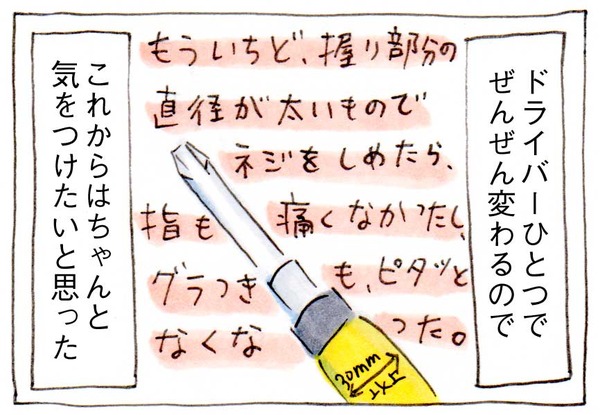 ドライバーひとつで
ぜんぜん変わるので
もういちど、握り部分の
直径が太いもので
ネジをしめたら、
指も痛くなかったし、
グラつきも、ピタッと
なくなった。
30mm
イメシ
これからはちゃんと
気をつけたいと思った